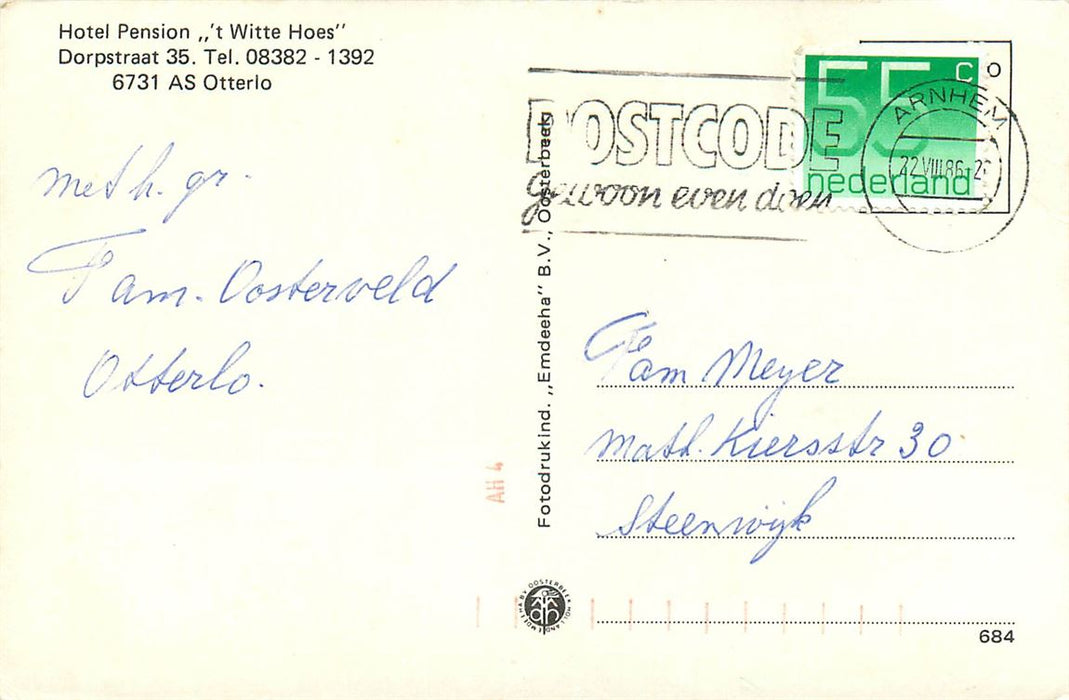 Hotel Pension ,,'t Witte Hoes''
Dorpstraat 35. Tel. 08382 - 1392
6731 AS Otterlo
met h. gr.
Fam. Oosterveld
Otterlo.
POSTCODE
gewoon even doen
55 c
nederland
ARNHEM
22.VIII.86
Fotodrukind. ,,Emdeeha'' B.V., Oosterbeek
Fam Meyer
Math. Kiersstr 30
Steenwijk
AH 4
684